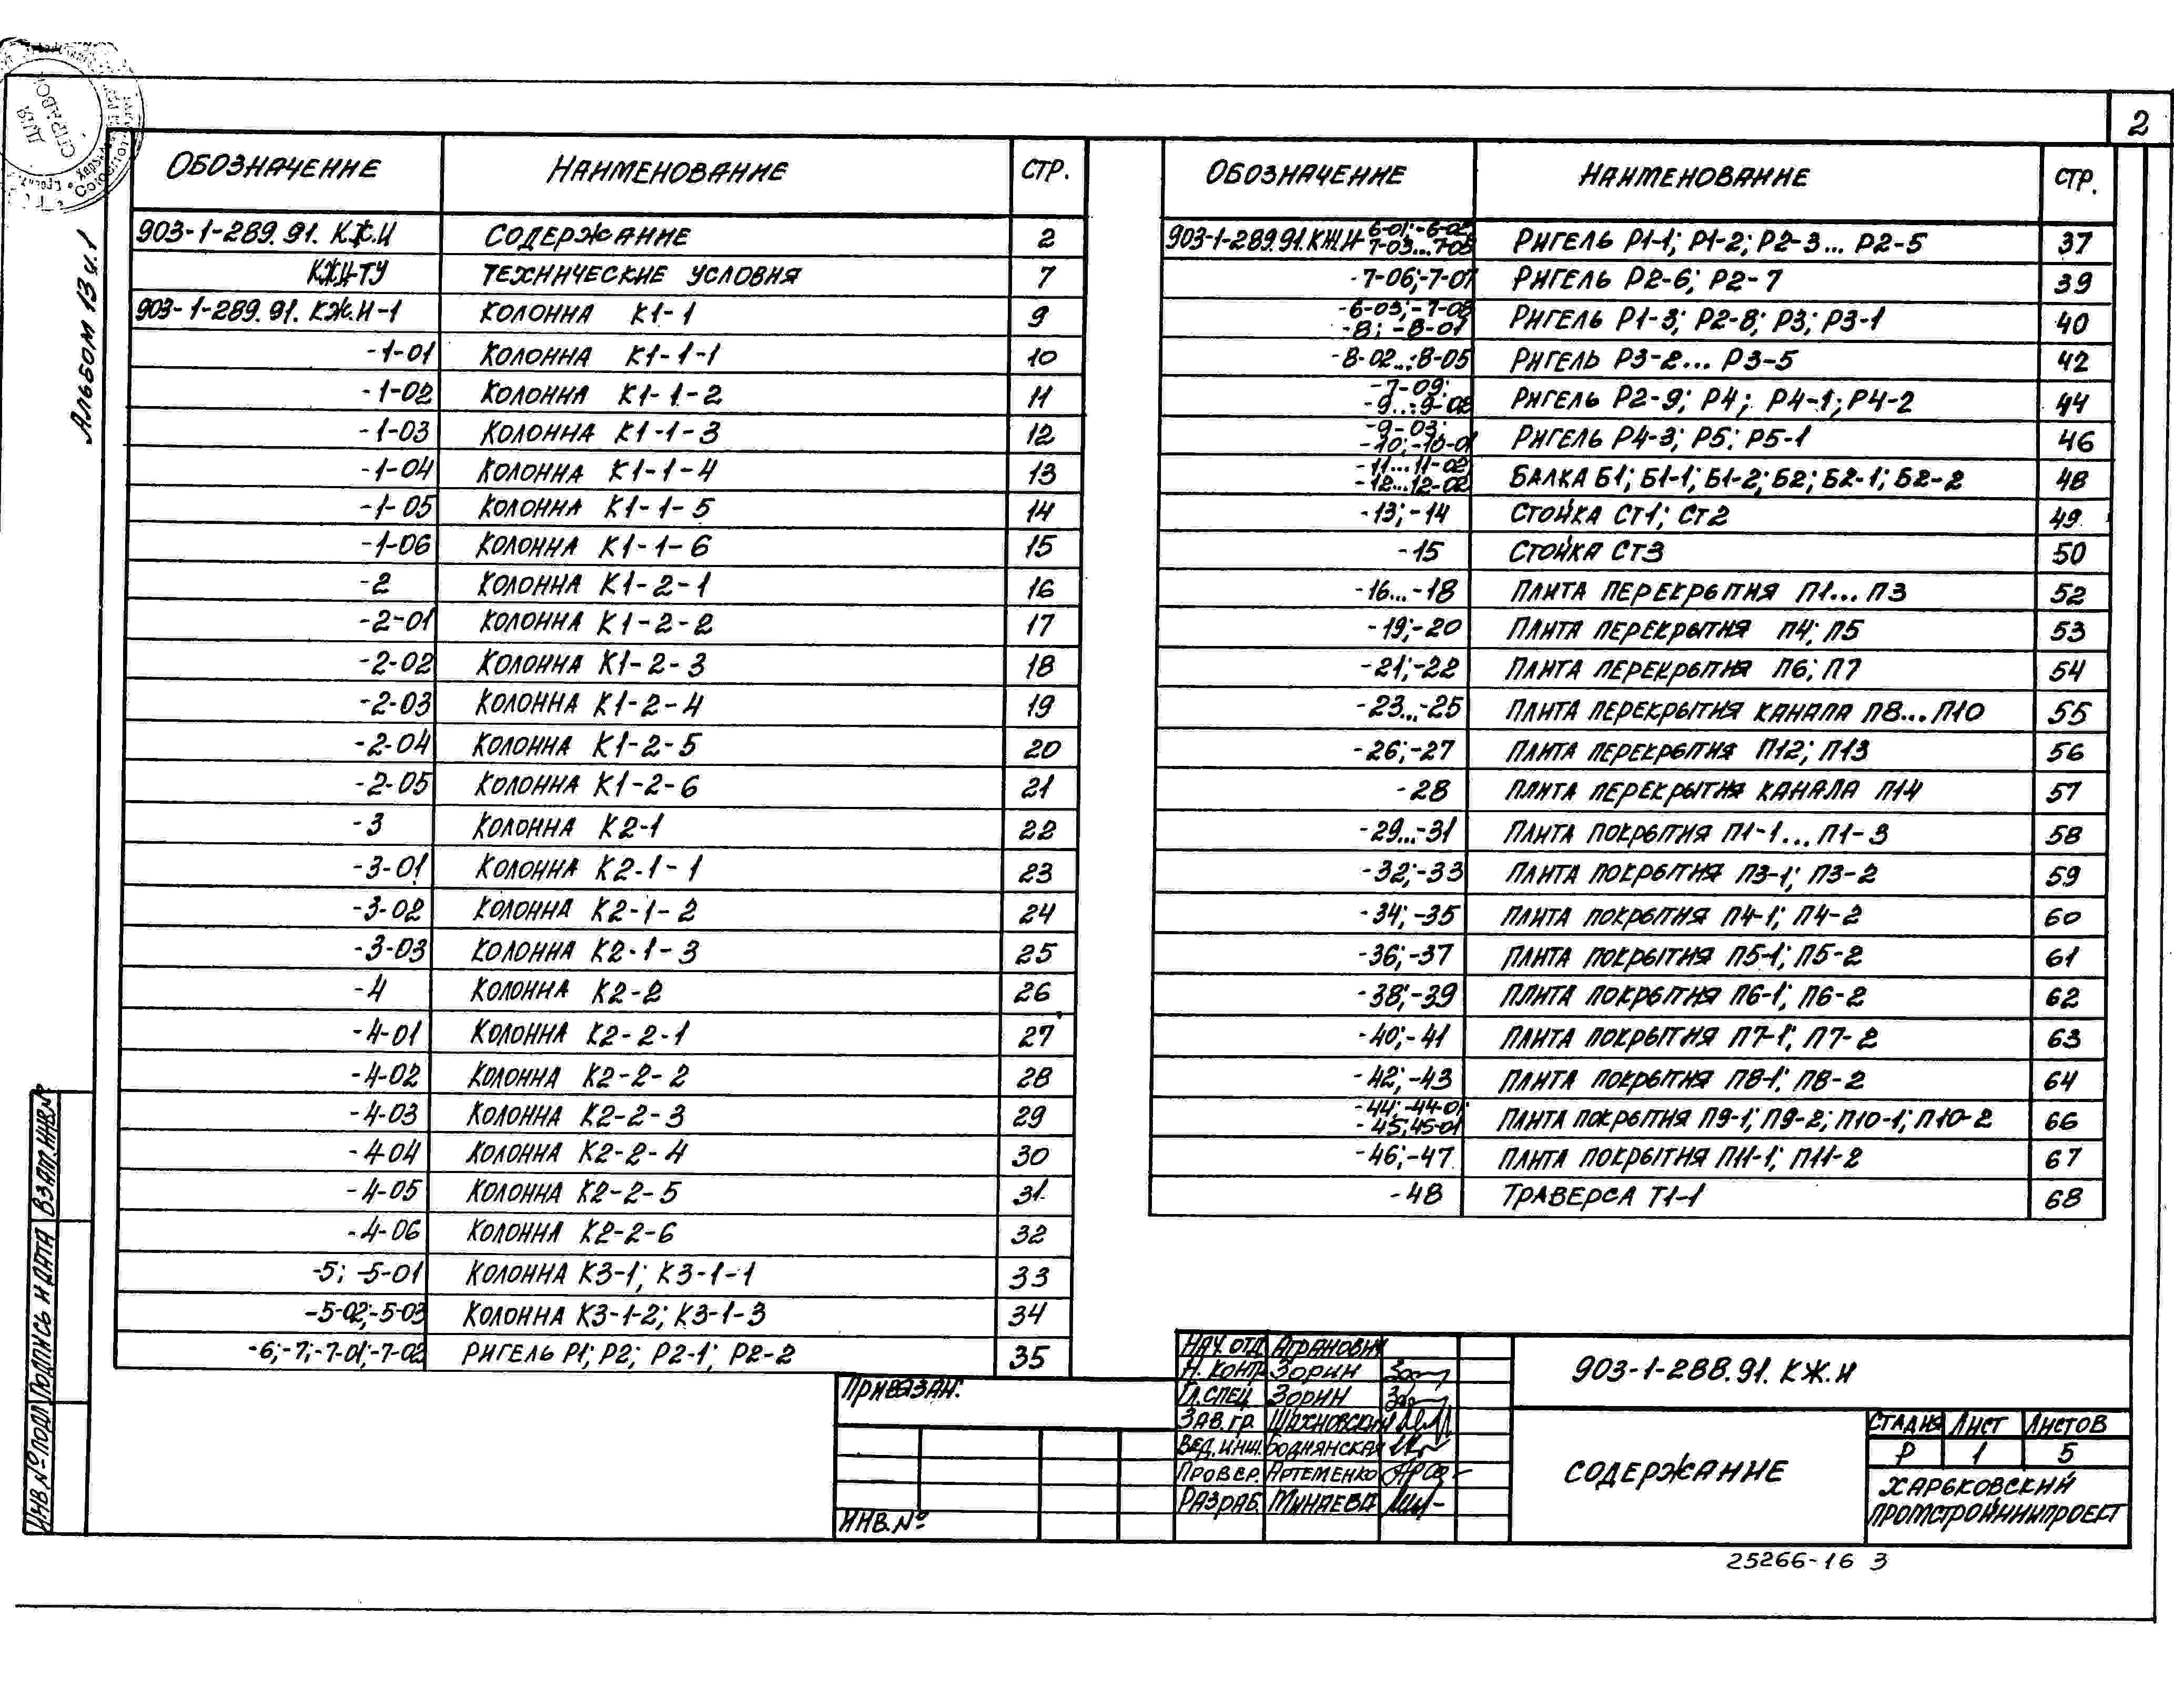 2
Альбом 13 ч.1
ОБОЗНАЧЕНИЕ НАИМЕНОВАНИЕ СТР.
903-1-289.91. КЖ.И СОДЕРЖАНИЕ 2
КЖИ-ТУ ТЕХНИЧЕСКИЕ УСЛОВИЯ 7
903-1-289.91. КЖ.И-1 КОЛОННА К1-1 9
-1-01 КОЛОННА К1-1-1 10
-1-02 КОЛОННА К1-1-2 11
-1-03 КОЛОННА К1-1-3 12
-1-04 КОЛОННА К1-1-4 13
-1-05 КОЛОННА К1-1-5 14
-1-06 КОЛОННА К1-1-6 15
-2 КОЛОННА К1-2-1 16
-2-01 КОЛОННА К1-2-2 17
-2-02 КОЛОННА К1-2-3 18
-2-03 КОЛОННА К1-2-4 19
-2-04 КОЛОННА К1-2-5 20
-2-05 КОЛОННА К1-2-6 21
-3 КОЛОННА К2-1 22
-3-01 КОЛОННА К2-1-1 23
-3-02 КОЛОННА К2-1-2 24
-3-03 КОЛОННА К2-1-3 25
-4 КОЛОННА К2-2 26
-4-01 КОЛОННА К2-2-1 27
-4-02 КОЛОННА К2-2-2 28
-4-03 КОЛОННА К2-2-3 29
-4-04 КОЛОННА К2-2-4 30
-4-05 КОЛОННА К2-2-5 31
-4-06 КОЛОННА К2-2-6 32
-5; -5-01 КОЛОННА К3-1; К3-1-1 33
-5-02;-5-03 КОЛОННА К3-1-2; К3-1-3 34
-6;-7;-7-01;-7-02 РИГЕЛЬ Р1; Р2; Р2-1; Р2-2 35
ОБОЗНАЧЕНИЕ НАИМЕНОВАНИЕ СТР.
903-1-289.91.КЖ.И-6-01;-6-02; 7-03...7-05 РИГЕЛЬ Р1-1; Р1-2; Р2-3... Р2-5 37
-7-06;-7-07 РИГЕЛЬ Р2-6; Р2-7 39
-6-03;-7-08 -8; -8-01 РИГЕЛЬ Р1-3; Р2-8; Р3; Р3-1 40
-8-02...-8-05 РИГЕЛЬ Р3-2... Р3-5 42
-7-09; -9...-9-02 РИГЕЛЬ Р2-9; Р4; Р4-1; Р4-2 44
-9-03; -10;-10-01 РИГЕЛЬ Р4-3; Р5; Р5-1 46
-11...11-02 -12...12-02 БАЛКА Б1; Б1-1; Б1-2; Б2; Б2-1; Б2-2 48
-13;-14 СТОЙКА СТ1; СТ2 49
-15 СТОЙКА СТ3 50
-16...-18 ПЛИТА ПЕРЕКРЫТИЯ П1... П3 52
-19;-20 ПЛИТА ПЕРЕКРЫТИЯ П4; П5 53
-21;-22 ПЛИТА ПЕРЕКРЫТИЯ П6; П7 54
-23...-25 ПЛИТА ПЕРЕКРЫТИЯ КАНАЛА П8... П10 55
-26;-27 ПЛИТА ПЕРЕКРЫТИЯ П12; П13 56
-28 ПЛИТА ПЕРЕКРЫТИЯ КАНАЛА П14 57
-29...-31 ПЛИТА ПОКРЫТИЯ П1-1... П1-3 58
-32;-33 ПЛИТА ПОКРЫТИЯ П3-1; П3-2 59
-34;-35 ПЛИТА ПОКРЫТИЯ П4-1; П4-2 60
-36;-37 ПЛИТА ПОКРЫТИЯ П5-1; П5-2 61
-38;-39 ПЛИТА ПОКРЫТИЯ П6-1; П6-2 62
-40;-41 ПЛИТА ПОКРЫТИЯ П7-1; П7-2 63
-42;-43 ПЛИТА ПОКРЫТИЯ П8-1; П8-2 64
-44;-44-01; -45;45-01 ПЛИТА ПОКРЫТИЯ П9-1; П9-2; П10-1; П10-2 66
-46;-47 ПЛИТА ПОКРЫТИЯ П11-1; П11-2 67
-48 ТРАВЕРСА Т1-1 68
ИНВ.№ПОДЛ ПОДПИСЬ И ДАТА ВЗАМ.ИНВ.№
ПРИВЯЗАН:
ИНВ.№
НАЧ.ОТД. АГРАНОВИЧ
Н.КОНТР. ЗОРИН
ГЛ.СПЕЦ ЗОРИН
ЗАВ.ГР. ШАХНОВСКИЙ
ВЕД.ИНЖ. БОДНЯНСКАЯ
ПРОВЕР. АРТЕМЕНКО
РАЗРАБ. МИНАЕВА
903-1-288.91. КЖ.И
СОДЕРЖАНИЕ
СТАДИЯ ЛИСТ ЛИСТОВ
Р 1 5
ХАРЬКОВСКИЙ
ПРОМСТРОЙНИИПРОЕКТ
25266-16 3